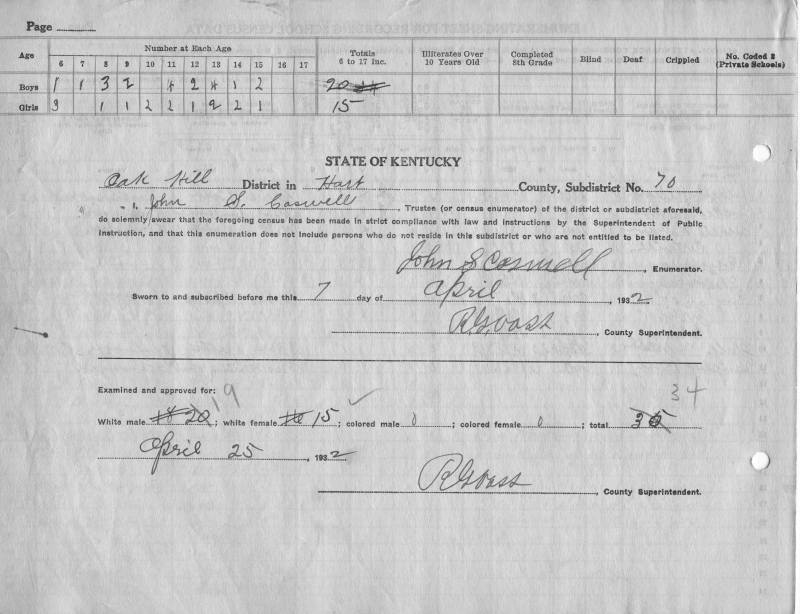 Page
Age Number at Each Age Totals 6 to 17 Inc. Illiterates Over 10 Years Old Completed 8th Grade Blind Deaf Crippled No. Coded 2 (Private Schools)
6 7 8 9 10 11 12 13 14 15 16 17
Boys 1 1 3 2 2 1 2 20
Girls 3 1 1 2 2 1 2 2 1 15
STATE OF KENTUCKY
Oak Hill District in Hart County, Subdistrict No. 70
I, John S. Caswell, Trustee (or census enumerator) of the district or subdistrict aforesaid,
do solemnly swear that the foregoing census has been made in strict compliance with law and instructions by the Superintendent of Public
Instruction, and that this enumeration does not include persons who do not reside in this subdistrict or who are not entitled to be listed.
John S Caswell, Enumerator.
Sworn to and subscribed before me this 7 day of April, 1932
County Superintendent.
Examined and approved for: 19 34
White male 20; white female 15; colored male 0; colored female 0; total 35
April 25, 1932
County Superintendent.